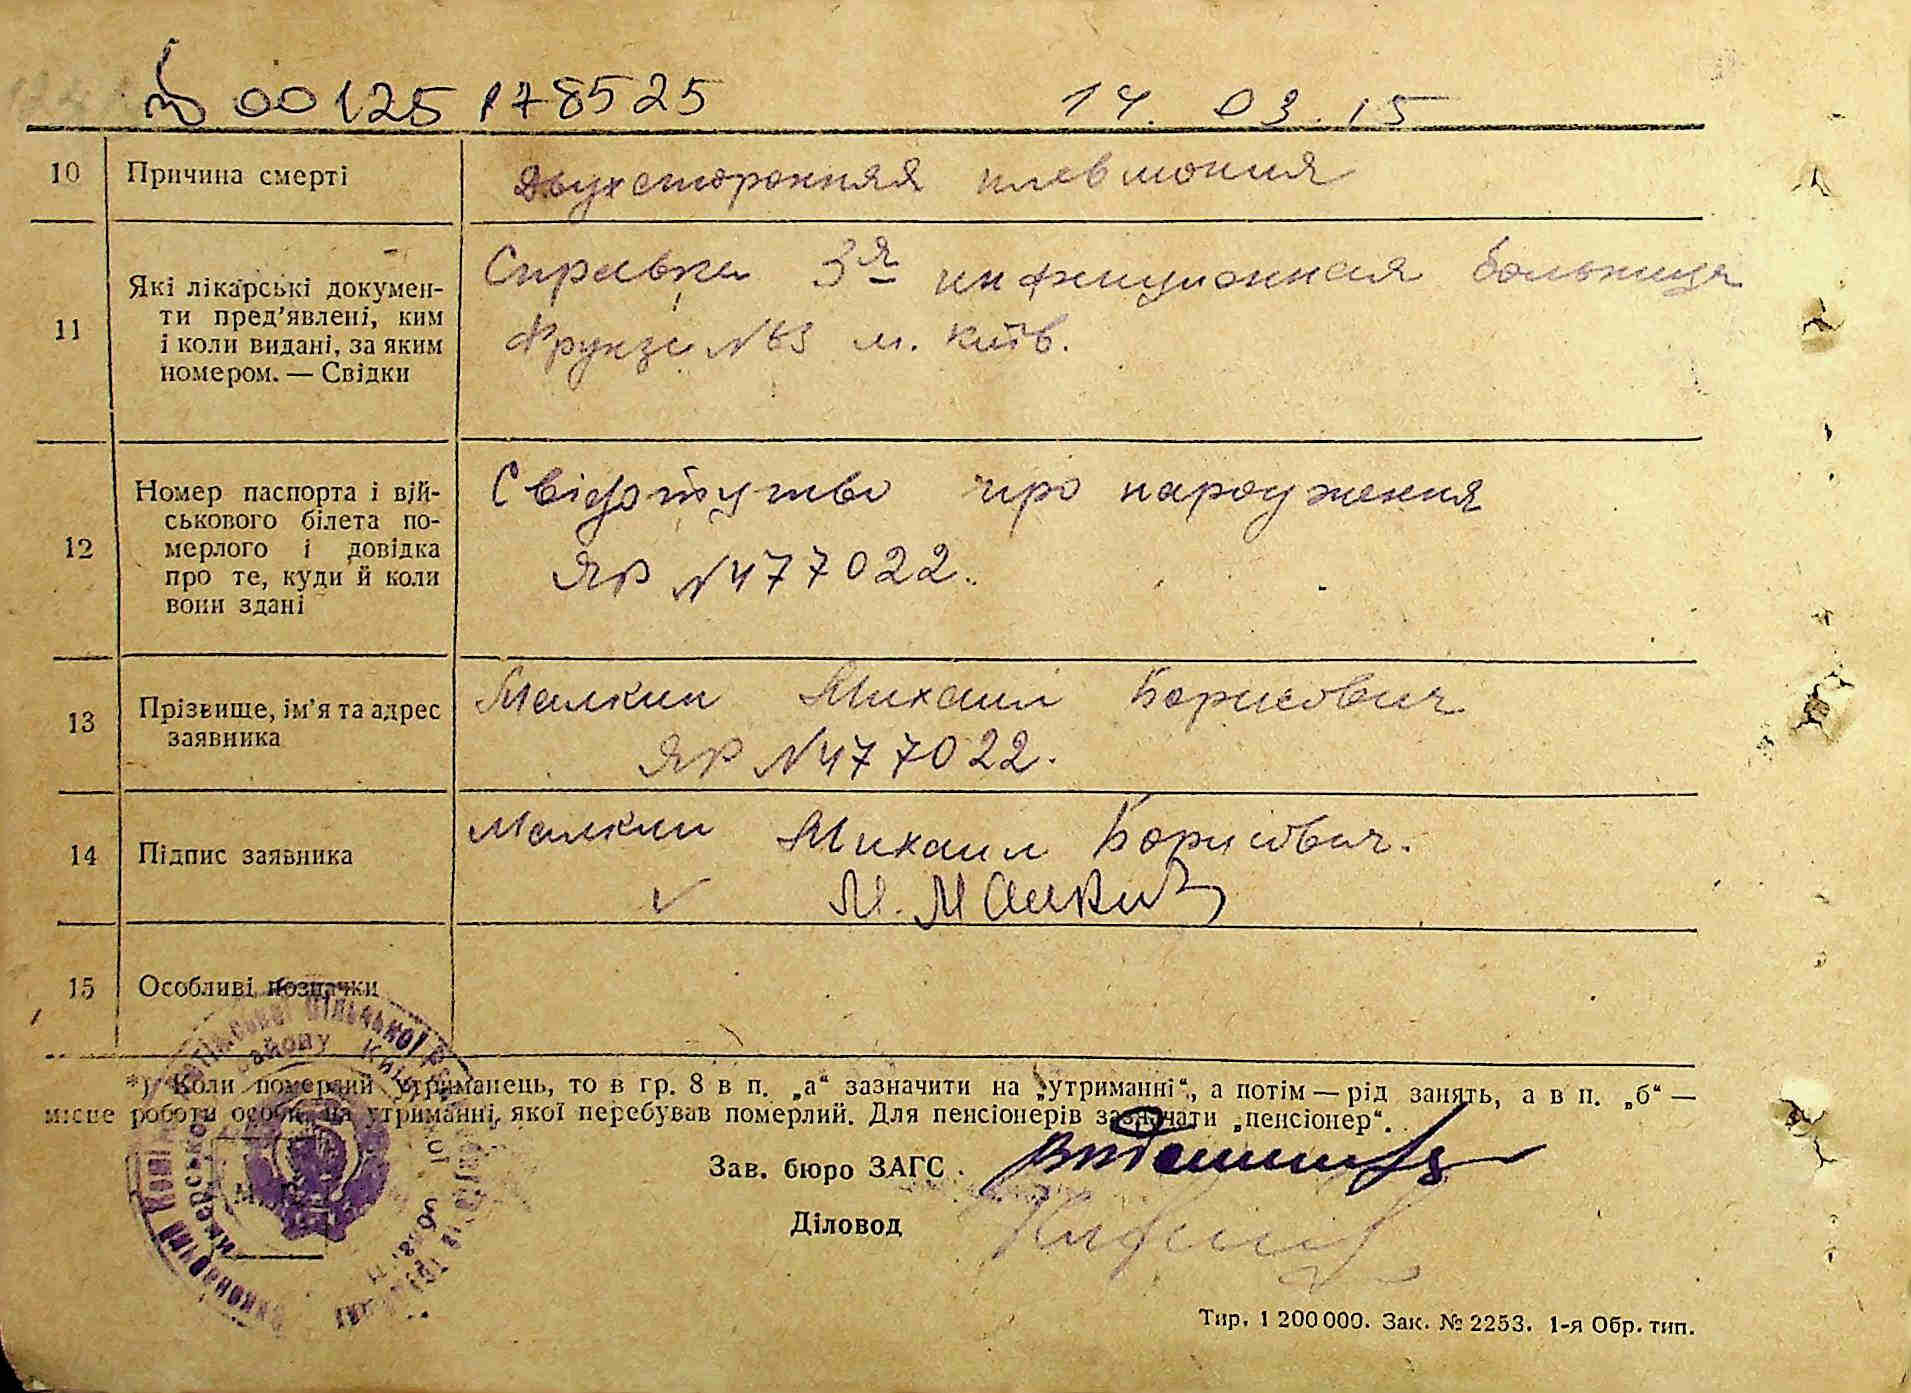 00125178525 14.03.15
10 Причина смерті Двухсторонняя плевмония
11 Які лікарські докумен-
ти пред'явлені, ким
і коли видані, за яким
номером. — Свідки
Справка 3я инфекционная больница
Фрунзе №63 м. Київ.
12 Номер паспорта і вій-
ськового білета по-
мерлого і довідка
про те, куди й коли
вони здані
Свідотутво про народження
ЯР №477022.
13 Прізвище, ім'я та адрес
заявника
Малкин Михаил Борисович
ЯР №477022.
14 Підпис заявника
Малкин Михаил Борисович.
М. Малкин
15 Особливі позначки
*) Коли померлий утриманець, то в гр. 8 в п. „а“ зазначити на „утриманні“, а потім — рід занять, а в п. „б“ —
місце роботи особи, на утриманні якої перебував померлий. Для пенсіонерів зазначати „пенсіонер“.
Зав. бюро ЗАГС
Діловод
Тир. 1 200 000. Зак. № 2253. 1-я Обр. тип.